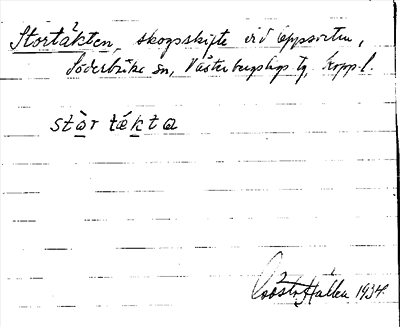 Stortäkten, skogsskifte vid Uppsveten,
Söderbärke sn, Västerbergslags tg, Kopp. l.
stòr tékta
Gösta Hallén 1934.